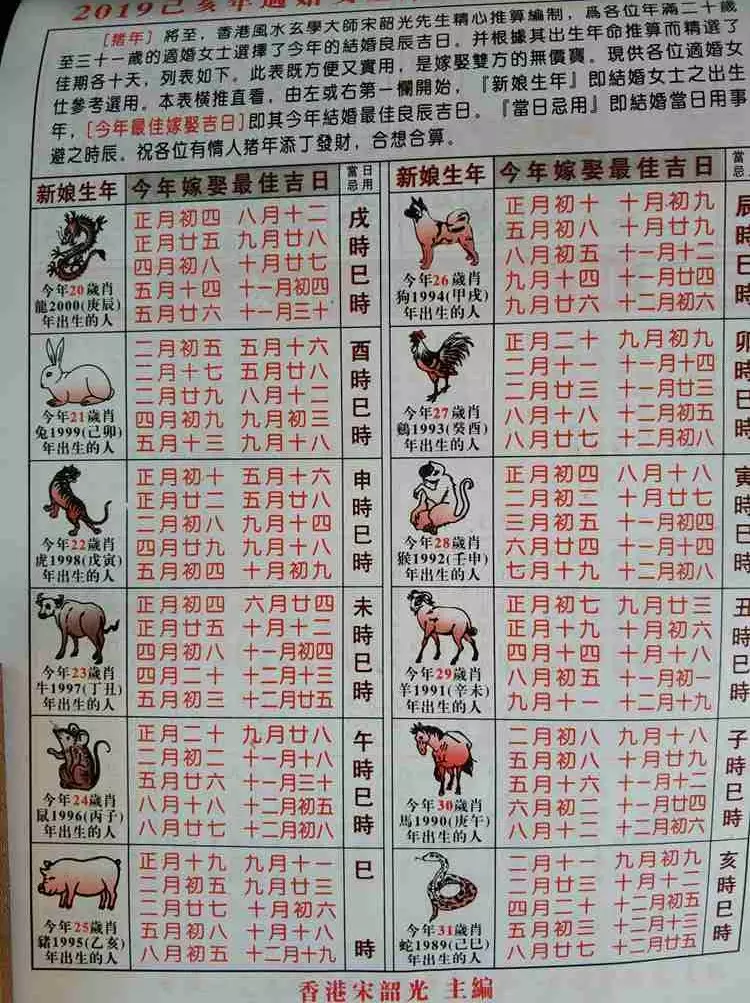 2019己亥年適婚
[猪年] 將至，香港風水玄學大師宋韶光先生精心推算編制，爲各位年滿二十歲
至三十一歲的適婚女士選擇了今年的結婚良辰吉日。并根據其出生年命推算而精選了
佳期各十天，列表如下。此表既方便又實用，是嫁娶雙方的無價寶。現供各位適婚女
仕參考選用。本表橫推直看，由左或右第一欄開始，『新娘生年』即結婚女士之出生
年，[今年最佳嫁娶吉日]即其今年結婚最佳良辰吉日。『當日忌用』即結婚當日用事
避之時辰。祝各位有情人猪年添丁發財，合想合算。
新娘生年 今年嫁娶最佳吉日 當日忌用
今年20歲肖
龍2000(庚辰)
年出生的人
正月初四 八月十二
正月廿五 九月廿八
四月初八 十月廿七
五月十四 十一月初四
五月廿六 十一月三十
戌時巳時
今年21歲肖
兔1999(己卯)
年出生的人
二月初五 五月十六
二月十七 五月廿八
二月廿九 八月十二
四月初九 九月初三
五月十三 九月十八
酉時巳時
今年22歲肖
虎1998(戊寅)
年出生的人
正月初十 五月十六
正月廿二 五月廿八
二月初八 九月十四
四月廿九 九月十八
五月初四 十月初九
申時巳時
今年23歲肖
牛1997(丁丑)
年出生的人
正月初四 六月廿四
正月廿五 十月十二
四月初八 十一月初四
四月二十 十二月十三
五月初三 十二月廿五
未時巳時
今年24歲肖
鼠1996(丙子)
年出生的人
正月二十 九月廿八
二月初二 十一月十八
五月廿六 十一月三十
八月十八 十二月初五
八月廿七 十二月初八
午時巳時
今年25歲肖
豬1995(乙亥)
年出生的人
正月十九 九月十一
二月初五 九月廿三
二月廿七 十月初六
五月初八 十月十八
八月初五 十二月十九
巳時
新娘生年 今年嫁娶最佳吉日 當日忌用
今年26歲肖
狗1994(甲戌)
年出生的人
正月初十 十月初九
五月初八 十月廿九
八月初五 十一月十二
九月十四 十一月廿四
九月廿六 十二月初六
辰時巳時
今年27歲肖
鷄1993(癸酉)
年出生的人
正月二十 九月初九
二月十一 十一月十四
二月廿三 十一月廿三
八月十八 十二月初五
八月廿七 十二月初八
卯時巳時
今年28歲肖
猴1992(壬申)
年出生的人
正月初四 八月十八
二月初二 十月廿七
三月初五 十一月初四
六月廿四 十一月十四
七月十九 十二月初八
寅時巳時
今年29歲肖
羊1991(辛未)
年出生的人
正月初七 九月廿三
正月十九 十月初六
四月十四 十月十八
八月初五 十一月初一
九月十一 十二月十九
丑時巳時
今年30歲肖
馬1990(庚午)
年出生的人
二月初八 九月十八
五月初四 十月廿九
五月十六 十一月十二
六月初二 十一月廿四
八月十二 十二月初六
子時巳時
今年31歲肖
蛇1989(己巳)
年出生的人
二月十一 九月初九
二月廿三 十月十二
四月二十 十二月初五
五月初三 十二月十三
八月十八 十二月廿五
亥時巳時
香港宋韶光 主編